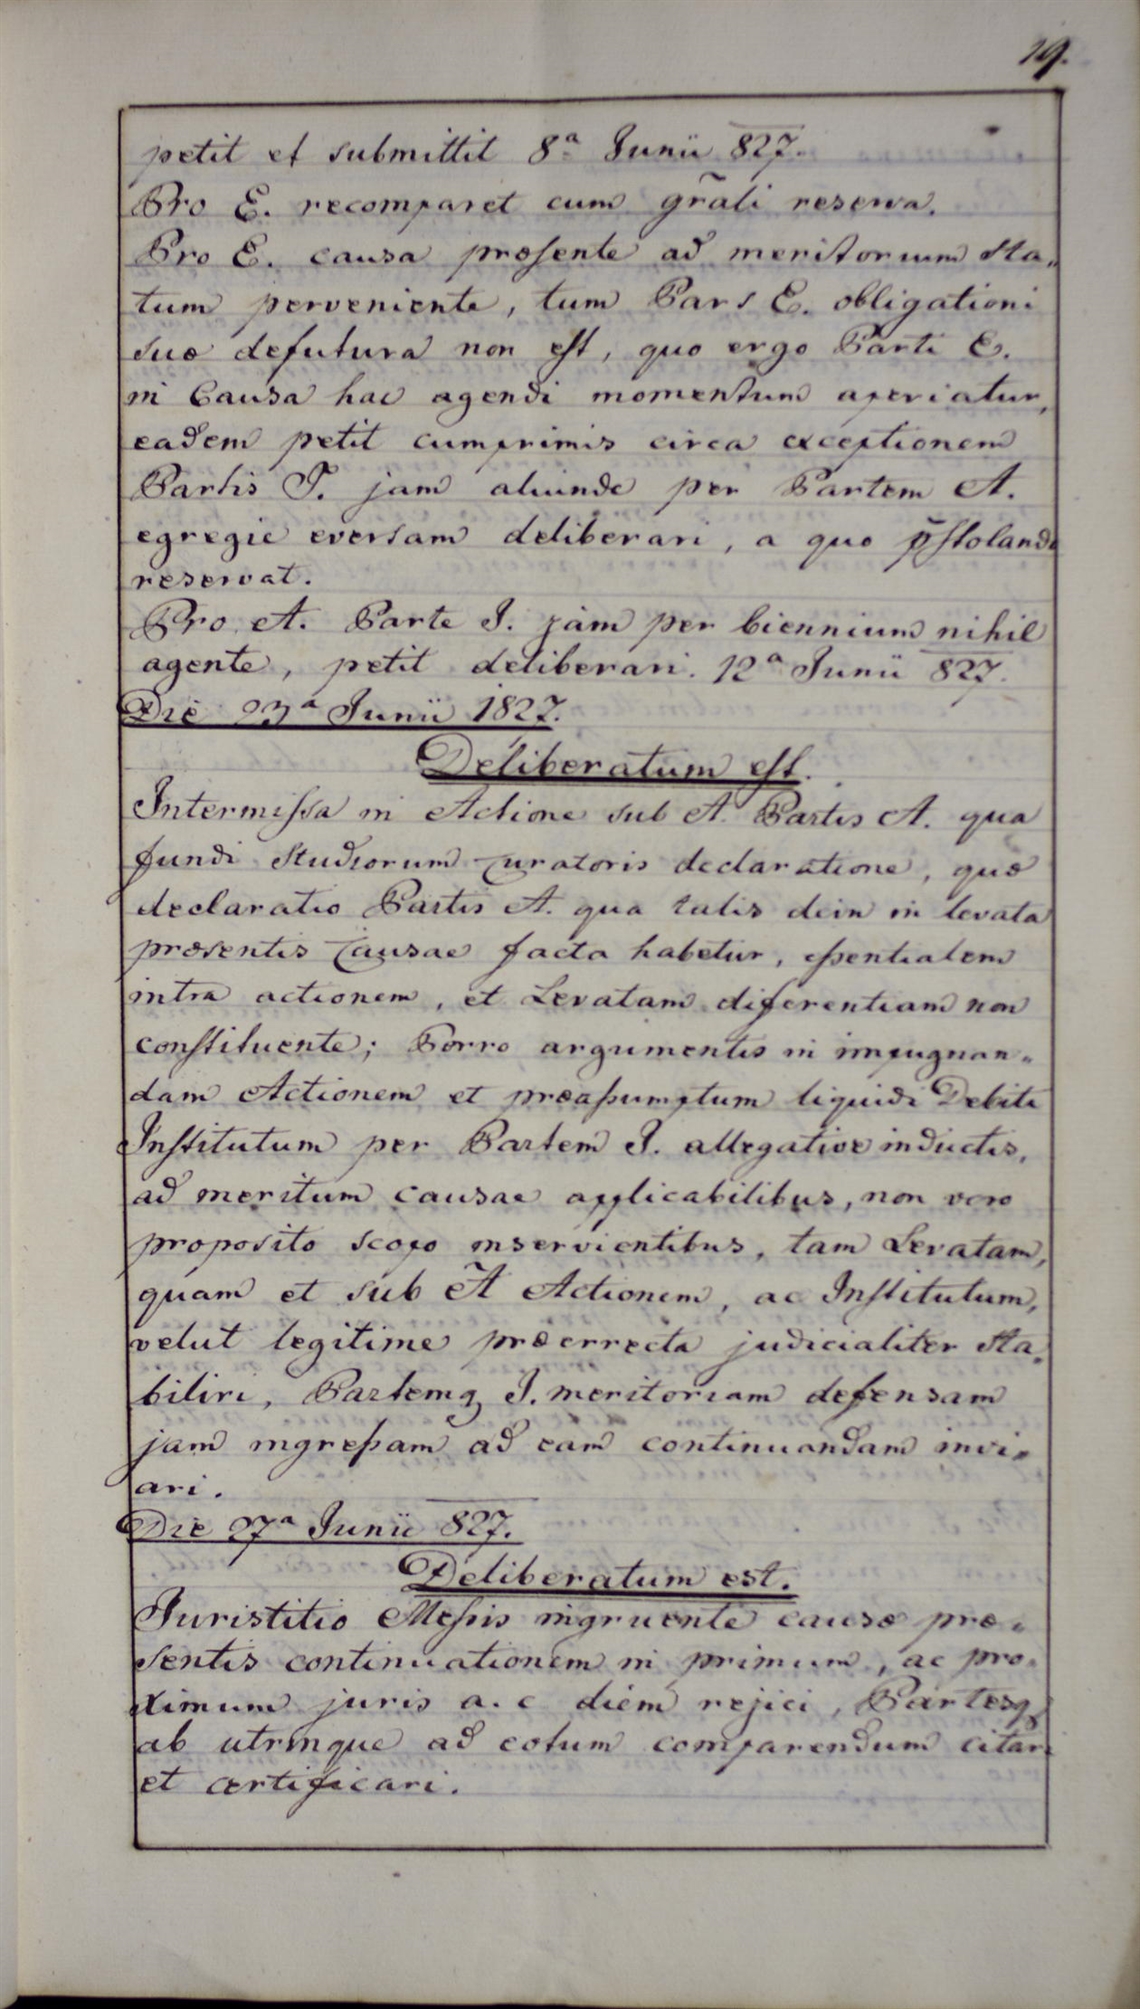 19.
petit et submittit 8ª Junii 827.
Pro E. recomparet cum gr̃ali reserva.
Pro E. causa præsente ad meritorium sta„
tum perveniente, tum Pars E. obligationi
suæ defutura non est, quo ergo Parti E.
in Causa hac agendi momentum aperiatur,
eadem petit cumprimis circa exceptionem
Partis I. jam aliunde per Partem A.
egregie eversam deliberari, a quo p̃stolando
reservat.
Pro A. Parte I. jam per biennium nihil
agente, petit deliberari. 12ª Junii 827.
Die 23ª Junii 1827.
Deliberatum est.
Intermissa in Actione sub A. Partis A. qua
fundi Studiorum Curatoris declaratione, quæ
declaratio Partis A. qua talis dein in levata
præsentis Causae facta habetur, essentialem
intra actionem, et Levatam diferentiam non
constituente; Porro argumentis in impugnan„
dam Actionem et præassumptum liquidi Debiti
Institutum per Partem I. allegative inductis,
ad meritum causae applicabilibus, non vero
proposito scopo inservientibus, tam Levatam,
quam et sub Ã Actionem, ac Institutum,
velut legitime præerrecta judicialiter sta„
biliri, Partemq I. meritoriam defensam
jam ingressam ad eam continuandam invi„
ari.
Die 27ª Junii 827.
Deliberatum est.
Juristitio Messis ingruente causæ præ„
sentis continuationem in primum, ac pro„
ximum juris a. c diem rejici, Partesq
ab utrinque ad eotum comparendum citari
et certificari.